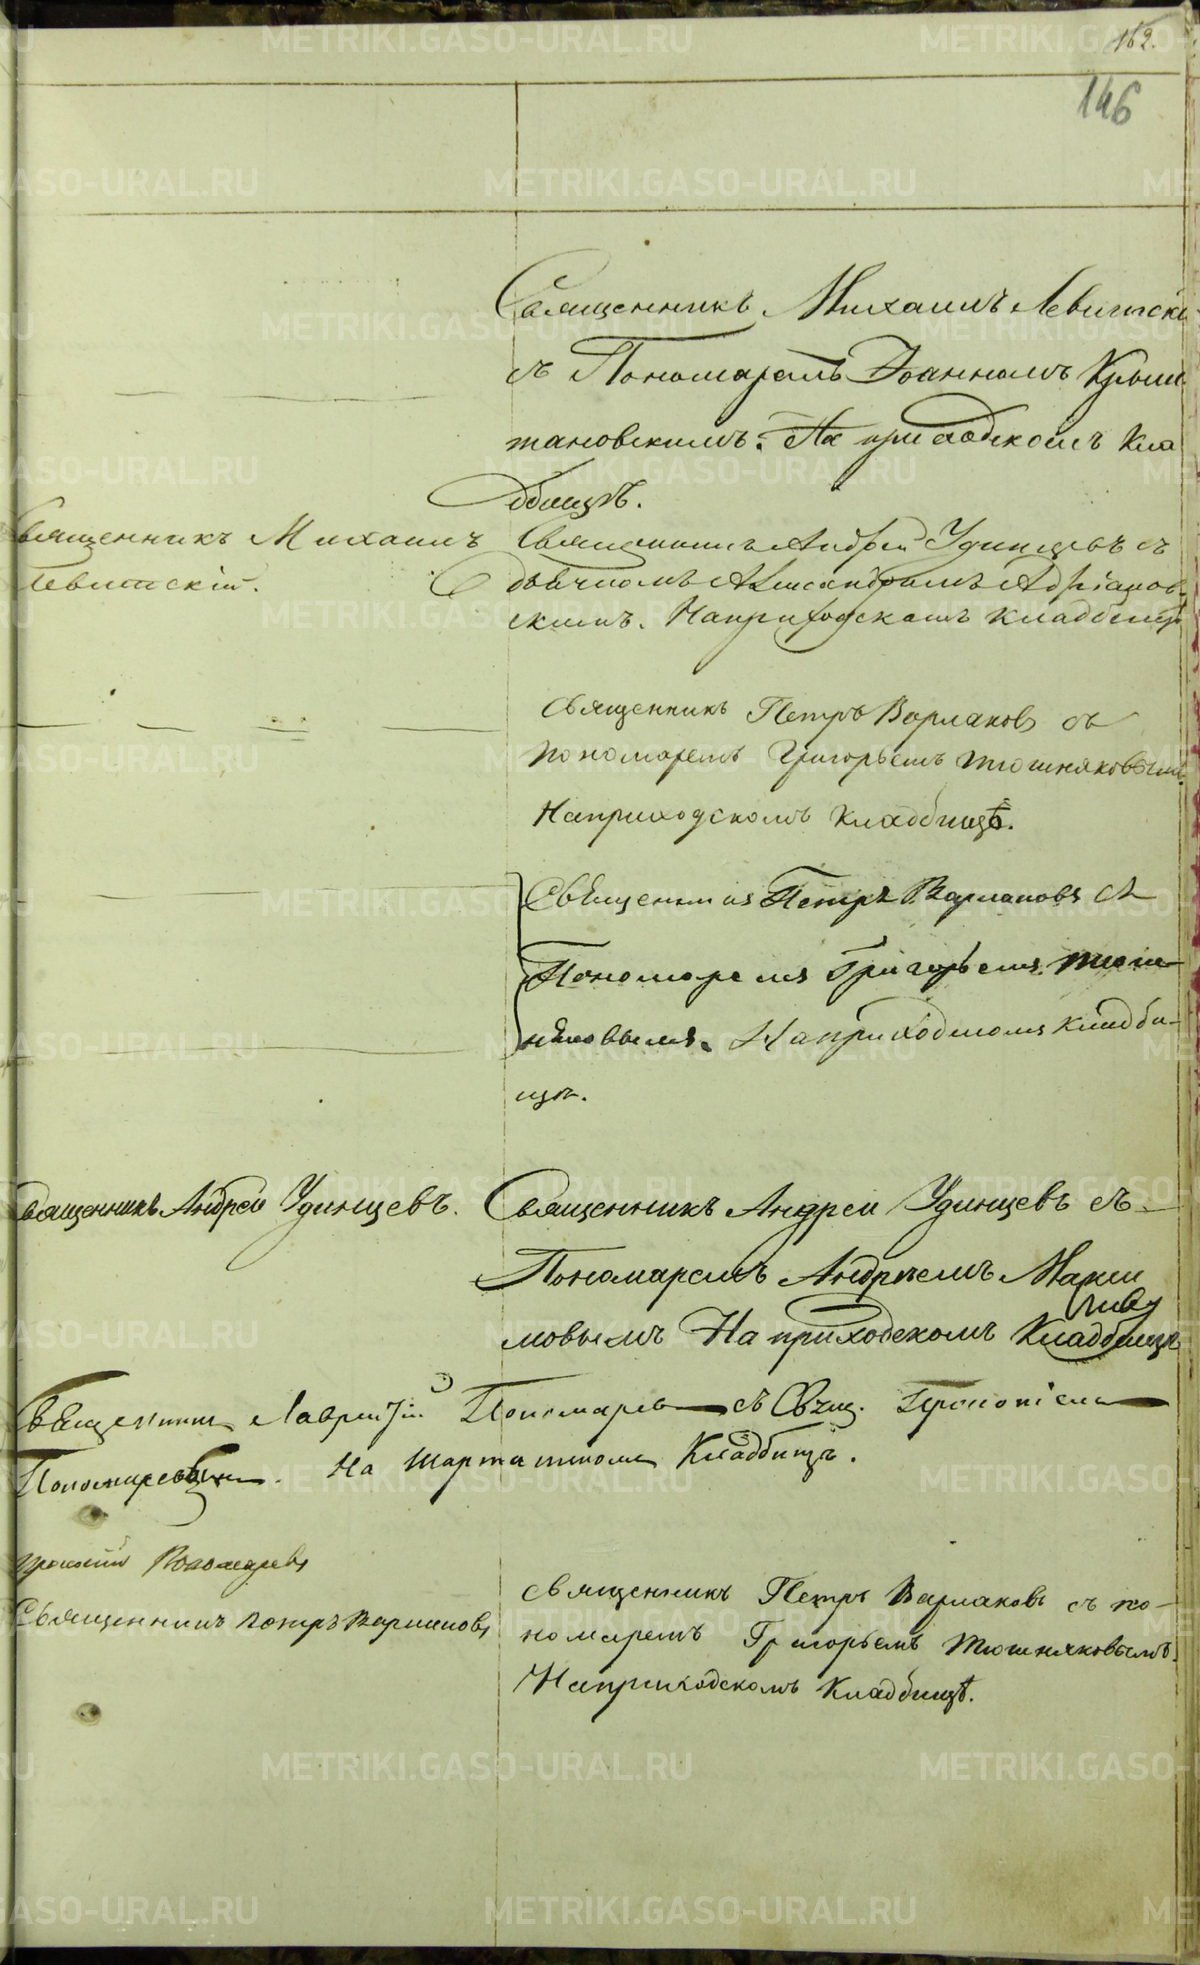 162.
146
Священникъ Михаилъ Левитскі
съ Пономаремъ Іоанномъ Крыш
тановскимъ. На приходскомъ Кла
дбищѣ.
Священникъ Михаилъ
Левитскій.
Священникъ Андрей Удинцевъ съ
дьячкомъ Александромъ Адріанов
скимъ. На приходскомъ кладбищѣ
Священникъ Петръ Варлаковъ съ
пономаремъ Григорьемъ Тюшняковымъ
На приходскомъ Кладбищѣ.
Священникъ Петръ Варлаковъ съ
Пономаремъ Григорьемъ Тюш-
няковымъ. На приходскомъ кладби-
щѣ.
Священникъ Андрей Удинцевъ.
Священникъ Андрей Удинцевъ съ
Пономаремъ Андреемъ Макси
мовымъ На приходскомъ Кладбищѣ
Священникъ Лаврентій Пономаревъ съ Свящ. Прокопіемъ
Пономаревымъ. На Шарташскомъ Кладбищѣ.
Прокопій Пономаревъ
Священникъ Петръ Варлаковъ
Священникъ Петръ Варлаковъ съ по-
номаремъ Григорьемъ Тюшняковымъ.
На приходскомъ Кладбищѣ.
METRIKI.GASO-URAL.RU